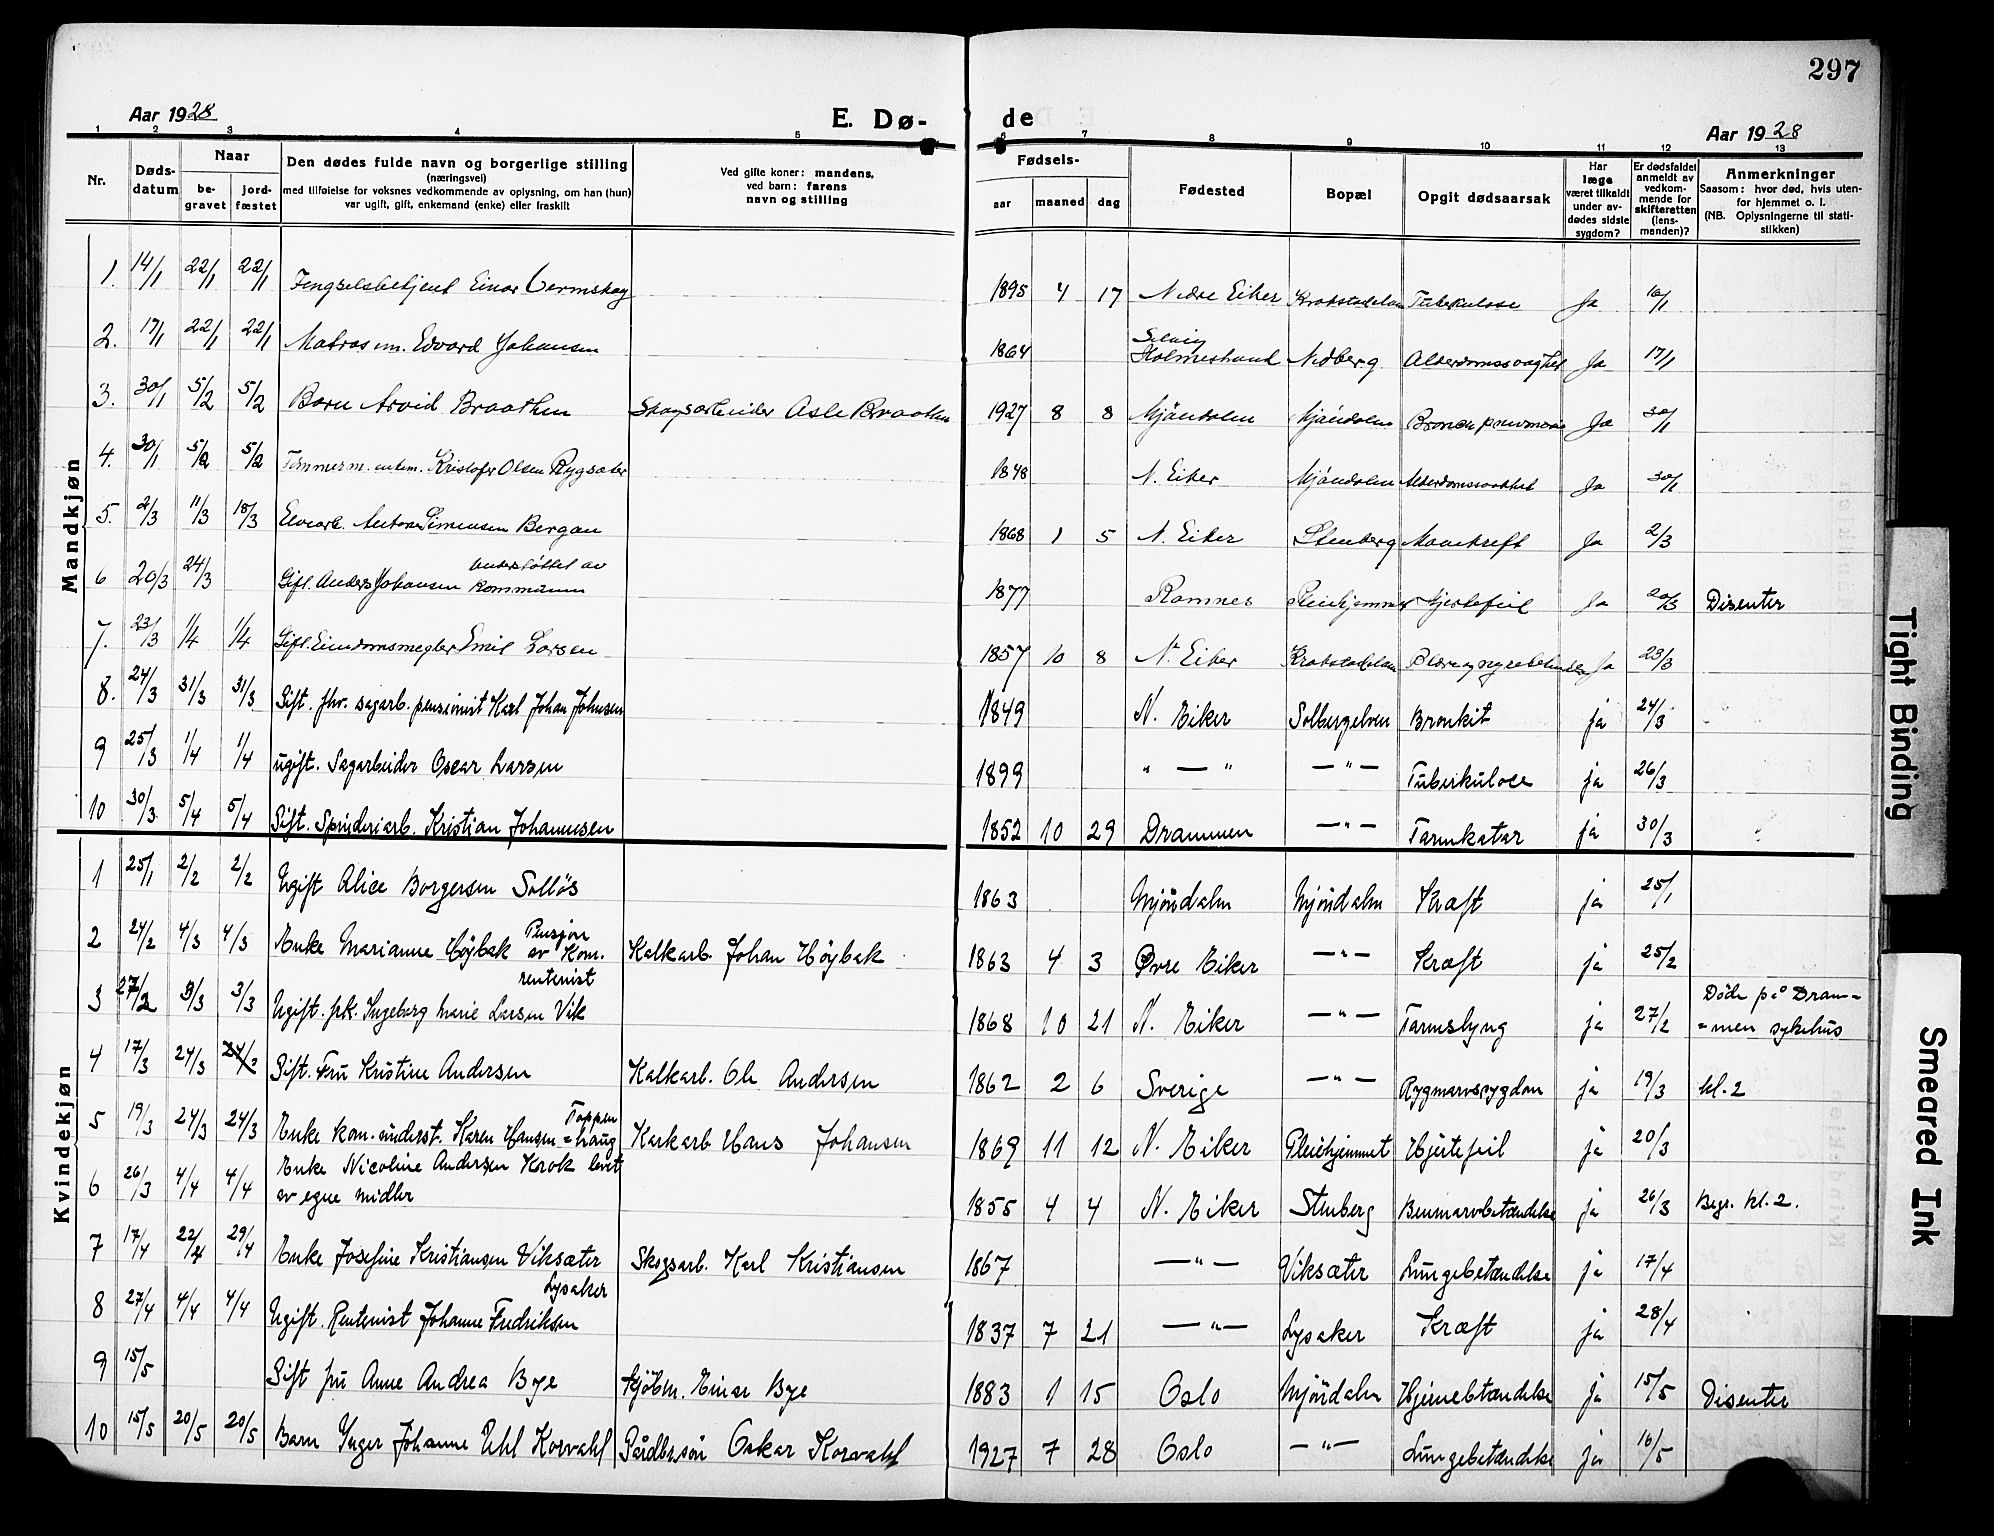 297
Aar 1928
E. Dø-
de
Aar 1928
1 2 3 4 5 6 7 8 9 10 11 12 13
Nr.
Døds-
datum
Naar
be-
gravet
jord-
fæstet
Den dødes fulde navn og borgerlige stilling
(næringsvei)
med tilføielse for voksnes vedkommende av oplysning, om han (hun)
var ugift, gift, enkemand (enke) eller fraskilt
Ved gifte koner: mandens,
ved barn: farens
navn og stilling
Fødsels-
aar maaned dag
Fødested
Bopæl
Opgit dødsaarsak
Har
læge
været tilkaldt
under av-
dødes sidste
sygdom?
Er dødsfaldet
anmeldt av
vedkom-
mende for
skifteretten
(lens-
manden)?
Anmerkninger
Saasom: hvor død, hvis uten-
for hjemmet o. l.
(NB. Oplysningerne til stati-
stikken)
Mandkjøn
1. 14/1 22/1 22/1 Fengselsbetjent Einar 1895 4 17 Nedre Eiker Krokstadelven Tuberkulose Ja 16/1
2. 17/1 22/1 22/1 Matros em. Edvard Johansen 1864 Selvig
Holmestrand Nedberg Alderdomssvaghet Ja 17/1
3. 30/1 5/2 5/2 Barn Arvid Braathen Skogsarbeider Asle Braathen 1927 8 8 Mjöndalen Mjöndalen Bronch pneumoni Ja 30/1
4. 30/1 5/2 5/2 Tömmerm. enkem. Kristofer Olsen Rygsæter 1848 N. Eiker Mjöndalen Alderdomssvakhet Ja 30/1
5. 2/3 11/3 18/3 Anton Simensen Bergan 1868 1 5 N. Eiker Stenberg Mavekreft Ja 2/3
6 20/3 24/3 Gift. Anders Johansen understöttet av
kommunen 1877 Ramnes Pleiehjemmet Hjertefeil Ja 20/3 Disenter
7. 23/3 1/4 1/4 Gift. Eiendomsmegler Emil Larsen 1857 10 8 N. Eiker Krokstadelven Blære og nyrebetændelse Ja 23/3
8. 24/3 31/3 31/3 Gift. fhv. sagarb. pensionist Karl Johan Johnsen 1849 N. Eiker Solbergelven Bronkit ja 24/3
9 25/3 1/4 1/4 ugift. Sagarbeider Oscar Larsen 1899 " — " — " — Tuberkulose ja 26/3
10 30/3 5/4 5/4 Gift. Spinderiarb. Kristian Johannesen 1852 10 29 Drammen — " — Tarmkatar ja 30/3
Kvindekjøn
1 25/1 2/2 2/2 Ugift Alice Borgersen Solløs 1863 Mjöndalen Mjöndalen Kræft ja 25/1
2 24/2 4/3 4/3 Enke Marianne Höybak Pensjon
av Kom. Kalkarb. Johan Höybak 1863 4 3 Øvre Eiker — " — Kræft ja 25/2
3 27/2 3/3 3/3 Ugift. frk. Ingeborg Marie Larsen Vik rentenist 1868 10 21 N. Eiker — " — Tarmslyng ja 27/2 Döde på Dram-
=men sykehus
4 17/3 24/3 24/3 Gift. Fru Kristine Andersen Kalkarb. Ole Andersen 1862 2 6 Sverige — " — Rygmarvssygdom ja 19/3 kl. 2
5 19/3 24/3 24/3 Enke kom. underst. Karen Hansen Toppen
=haug Karkarb Hans Johansen 1869 11 12 N. Eiker Pleiehjemmet Hjertefeil ja 20/3
6 26/3 4/4 4/4 Enke Nicoline Andersen Krok levet
av egne midler 1855 4 4 N. Eiker Stenberg Benmarvbetændelse ja 26/3 Begr. kl. 2.
7 17/4 22/4 29/4 Enke Josefine Kristiansen Viksæter Skogsarb. Karl Kristiansen 1867 — " — Viksæter Lungebetændelse ja 17/4
8 27/4 4/4 4/4 Ugift. Rentenist Johanne Fredriksen Lysaker 1837 7 21 — " — Lysaker Kræft ja 28/4
9 15/5 Gift fru Anne Andrea Bye Kjöbm. Einar Bye 1883 1 15 Oslo Mjöndalen Hjernebetændelse ja 15/5 Disenter
10 15/5 20/5 20/5 Barn Inger Johanne Uhl Korvald Gårdbr.sön Oskar Korvald 1927 7 28 Oslo — " — Lungebetændelse ja 16/5
Tight Binding
Smeared Ink